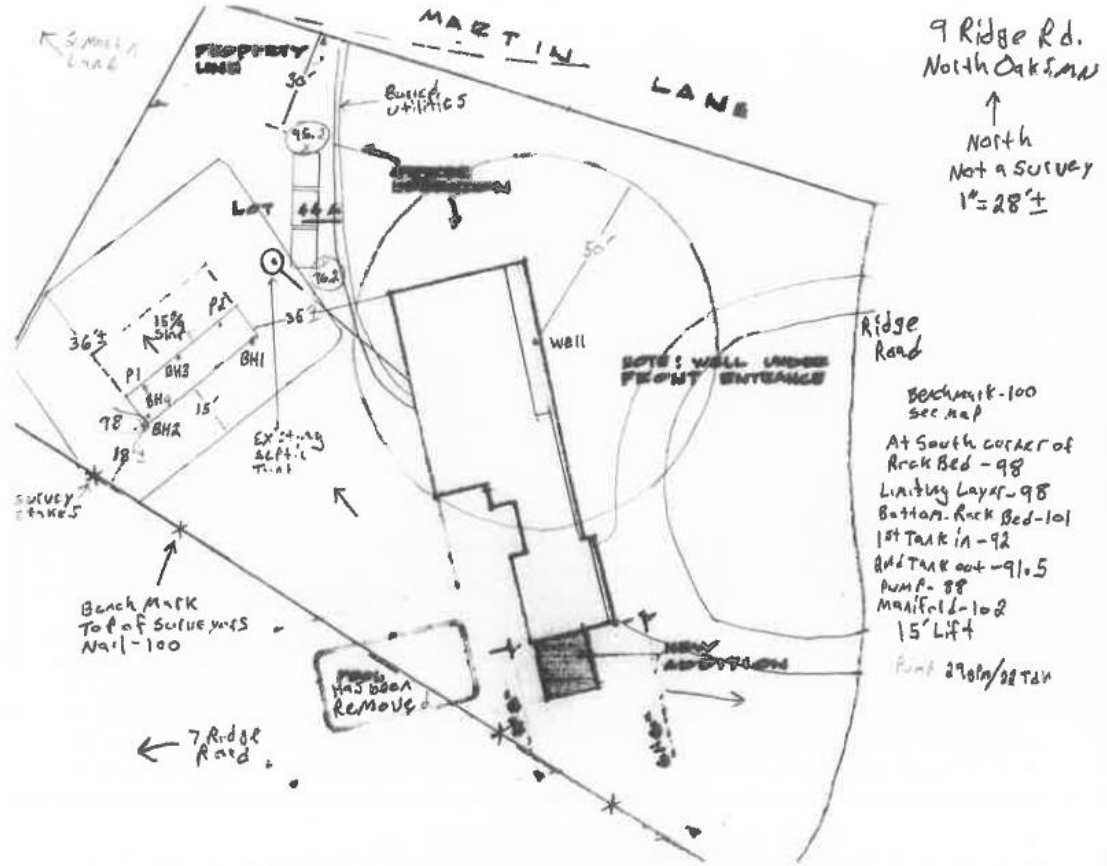 MARTIN
LANE
9 Ridge Rd.
North Oaks, MN
North
Not a Survey
1"=28'±
PROPERTY
LINE
30'
Buried
utilities
95.2
LOT 44A
96.2
50'
36'±
15%
Slope
P2
BH1
BH3
P1
BH4
BH2
98
18±
15'
35'±
Existing
Septic
Tank
well
NOTE: WELL UNDER
FRONT ENTRANCE
Ridge
Road
Benchmark-100
see map
At South corner of
Rock Bed - 98
Limiting Layer - 98
Bottom-Rock Bed-101
1st Tank in - 92
2nd Tank out - 91.5
Pump - 88
Manifold - 102
15' Lift
Pump 29gpm/22 TDH
Survey
Stakes
Bench Mark
Top of Surveyors
Nail - 100
POOL
Has been
Removed
NEW
ADDITION
7 Ridge
Road